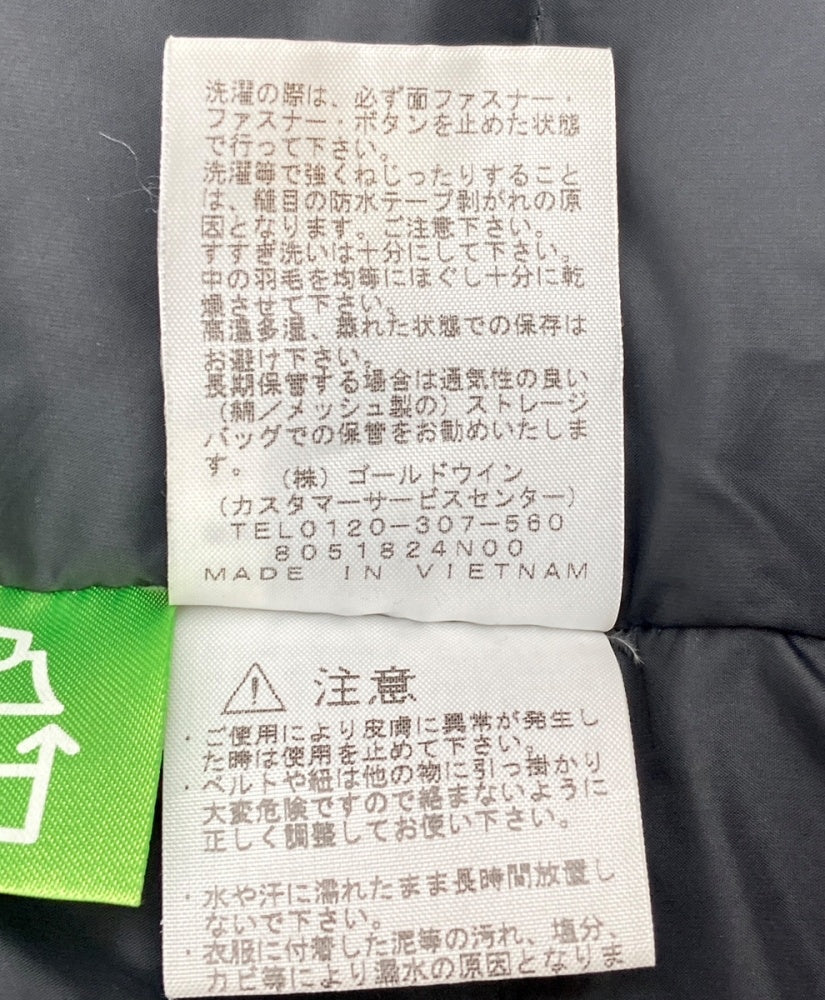 洗濯の際は、必ず面ファスナー・
ファスナー・ボタンを止めた状態
で行って下さい。
洗濯等で強くねじったりすること
は、縫目の防水テープ剥がれの原
因となります。ご注意下さい。
すすぎ洗いは十分にして下さい。
中の羽毛を均等にほぐし十分に乾
燥させて下さい。
高温多湿、蒸れた状態での保存は
お避け下さい。
長期保管する場合は通気性の良い
（綿／メッシュ製の）ストレージ
バッグでの保管をお勧めいたしま
す。
（株）ゴールドウイン
（カスタマーサービスセンター）
TEL0120-307-560
8051824N00
MADE IN VIETNAM
注意
・ご使用により皮膚に異常が発生し
た時は使用を止めて下さい。
・ベルトや紐は他の物に引っ掛かり
大変危険ですので絡まないように
正しく調整してお使い下さい。
・水や汗に濡れたまま長時間放置し
ないで下さい。
・衣服に付着した泥等の汚れ、塩分、
カビ等により漏水の原因となりま